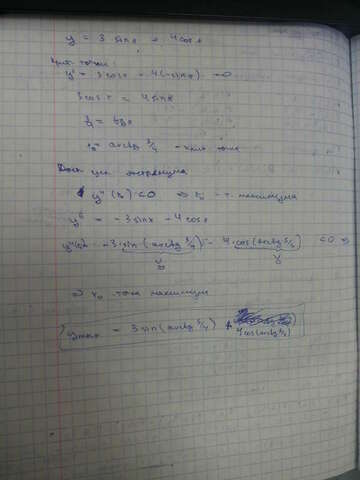 y = 3 sinx + 4cosx
Крит. точки:
y' = 3cosx + 4(-sinx) = 0
3cosx = 4sinx
3/4 = tgx
x₀ = arctg 3/4 - крит. точка
Дост. усл. экстремума
y''(x₀) < 0 ⇒ x₀ - т. максимума
y'' = -3sinx - 4cosx
y''(x₀) = -3 sin(arctg 3/4) - 4 cos(arctg 3/4) < 0 ⇒
⇒ x₀ точка максимума
ymax = 3 sin(arctg 3/4) + 4cos(arctg 3/4)